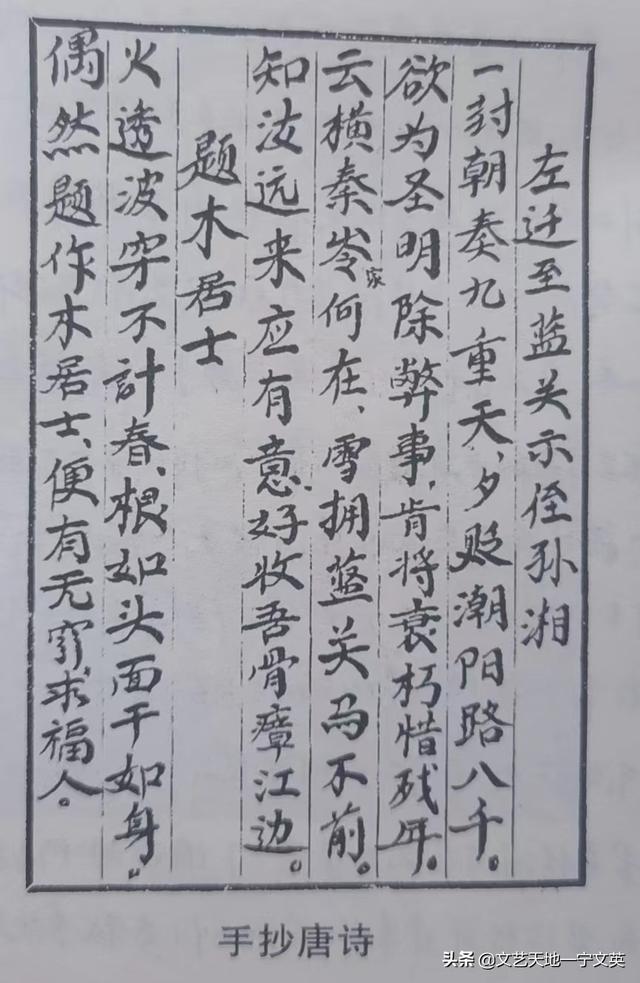 左迁至蓝关示侄孙湘
一封朝奏九重天，夕贬潮阳路八千。
欲为圣明除弊事，肯将衰朽惜残年。
云横秦岺家何在，雪拥蓝关马不前。
知汝远来应有意，好收吾骨瘴江边。
题木居士
火透波穿不計春，根如头面干如身。
偶然题作木居士，便有无穷求福人。
手抄唐诗
头条 @文艺天地一宁文英